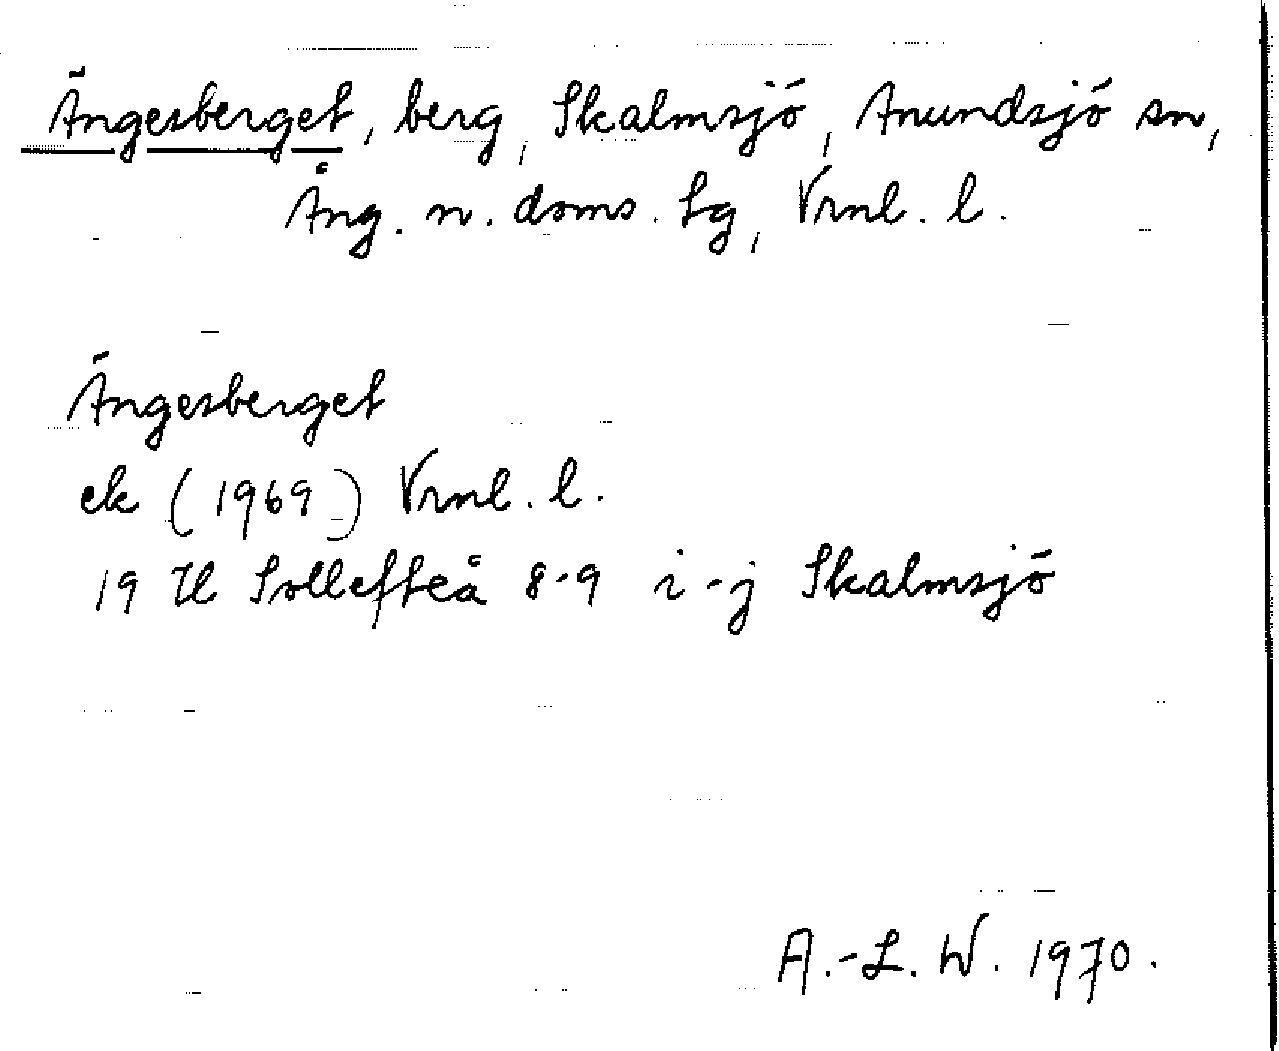 Ängesberget, berg, Skalmsjö, Anundsjö sn,
Ång. n. doms. tg, Vrnl. l.
Ängesberget
ek (1969) Vrnl. l.
19 H Sollefteå 8-9 i-j Skalmsjö
A.-L. W. 1970.